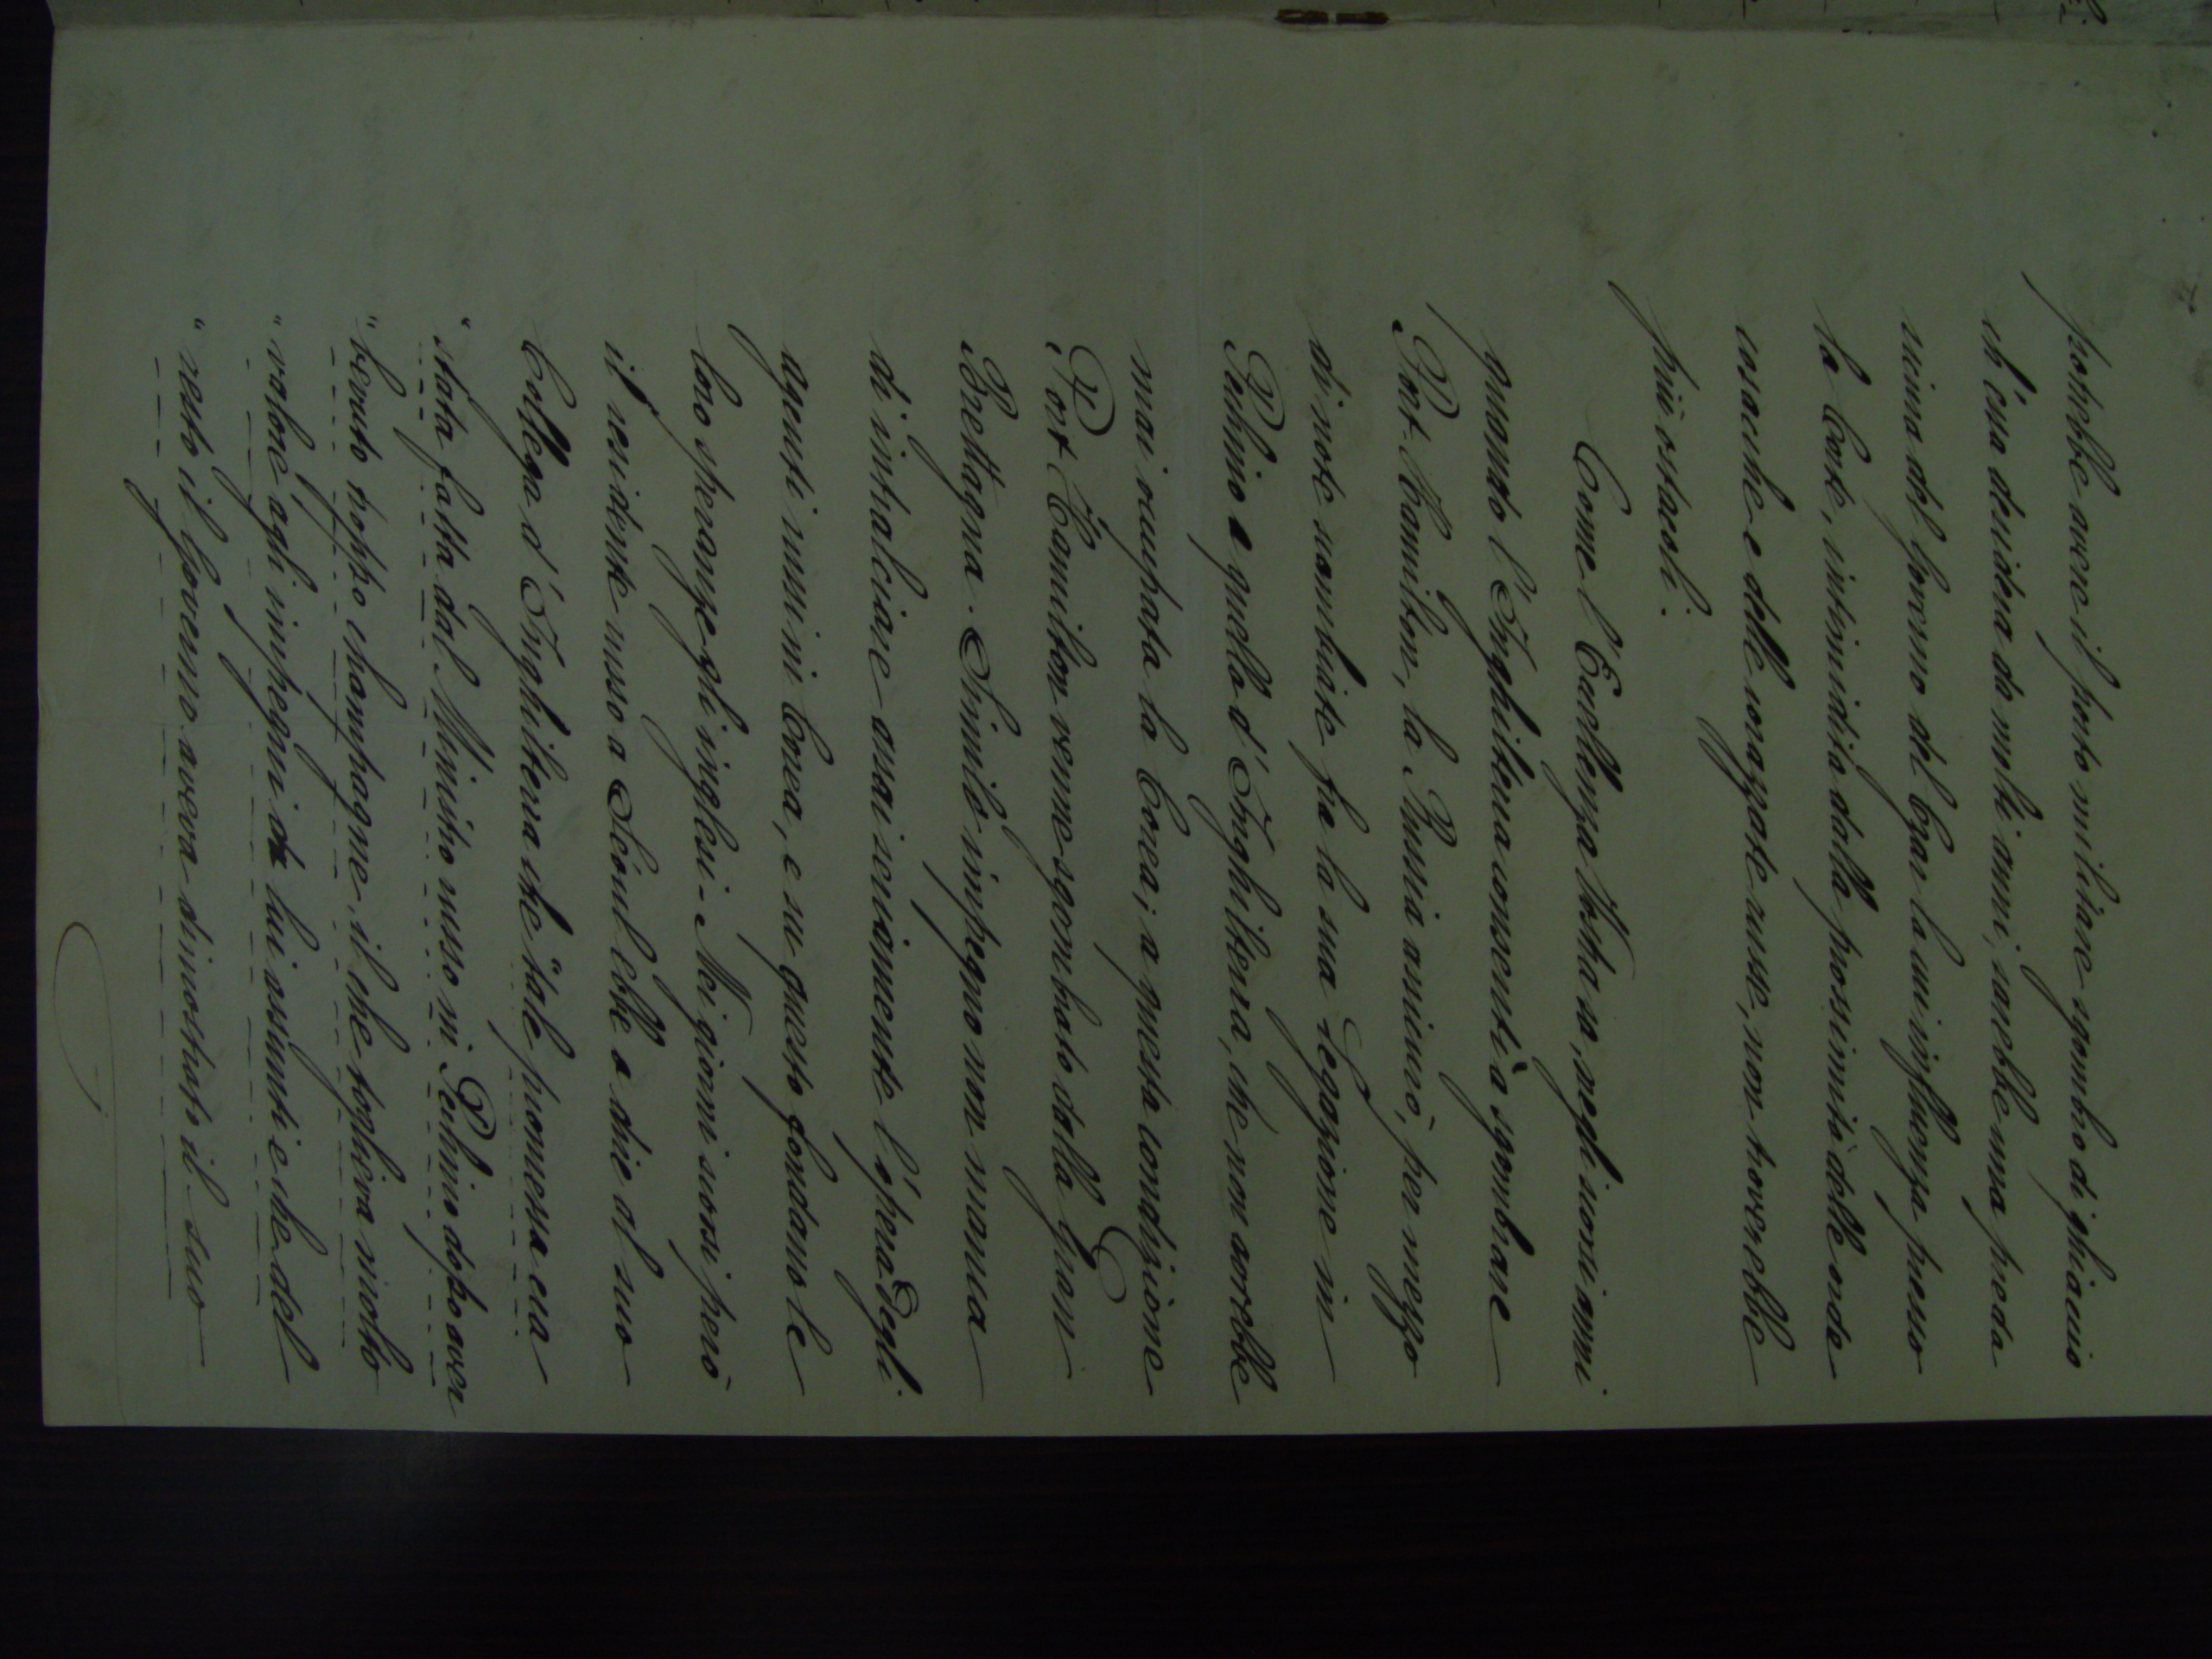 potrebbe avere il porto militare sgombro di ghiaccio
ch'essa desidera da molti anni, sarebbe una preda
sicura del Governo del Czar la cui influenza presso
la Corte, intimidita dalla prossimità delle orde
cosacche e delle corazzate russe, non troverebbe
più ostacoli.
Come l'Eccellenza Vostra sa, negli scorsi anni
quando l'Inghilterra consentì a sgombrare
Port-Hamilton, la Russia assicurò, per mezzo
di note scambiate fra la sua Legazione in
Pechino e quella d'Inghilterra, che non avrebbe
mai occupata la Corea; a questa condizione
Port Hamilton venne sgombrato dalla Gran
Brettagna. Simile impegno non manca
di intralciare assai seriamente l'opera degli
agenti russi in Corea, e su questo fondano le
loro speranze gli inglesi. Nei giorni scorsi però
il residente russo a Séoul ebbe a dire al suo
Collega d'Inghilterra che "tale promessa era
"stata fatta dal Ministro russo in Pechino dopo aver
"bevuto troppo champagne, il che toglieva molto
"valore agli impegni da lui assunti e che del
"resto il Governo aveva dimostrato il suo